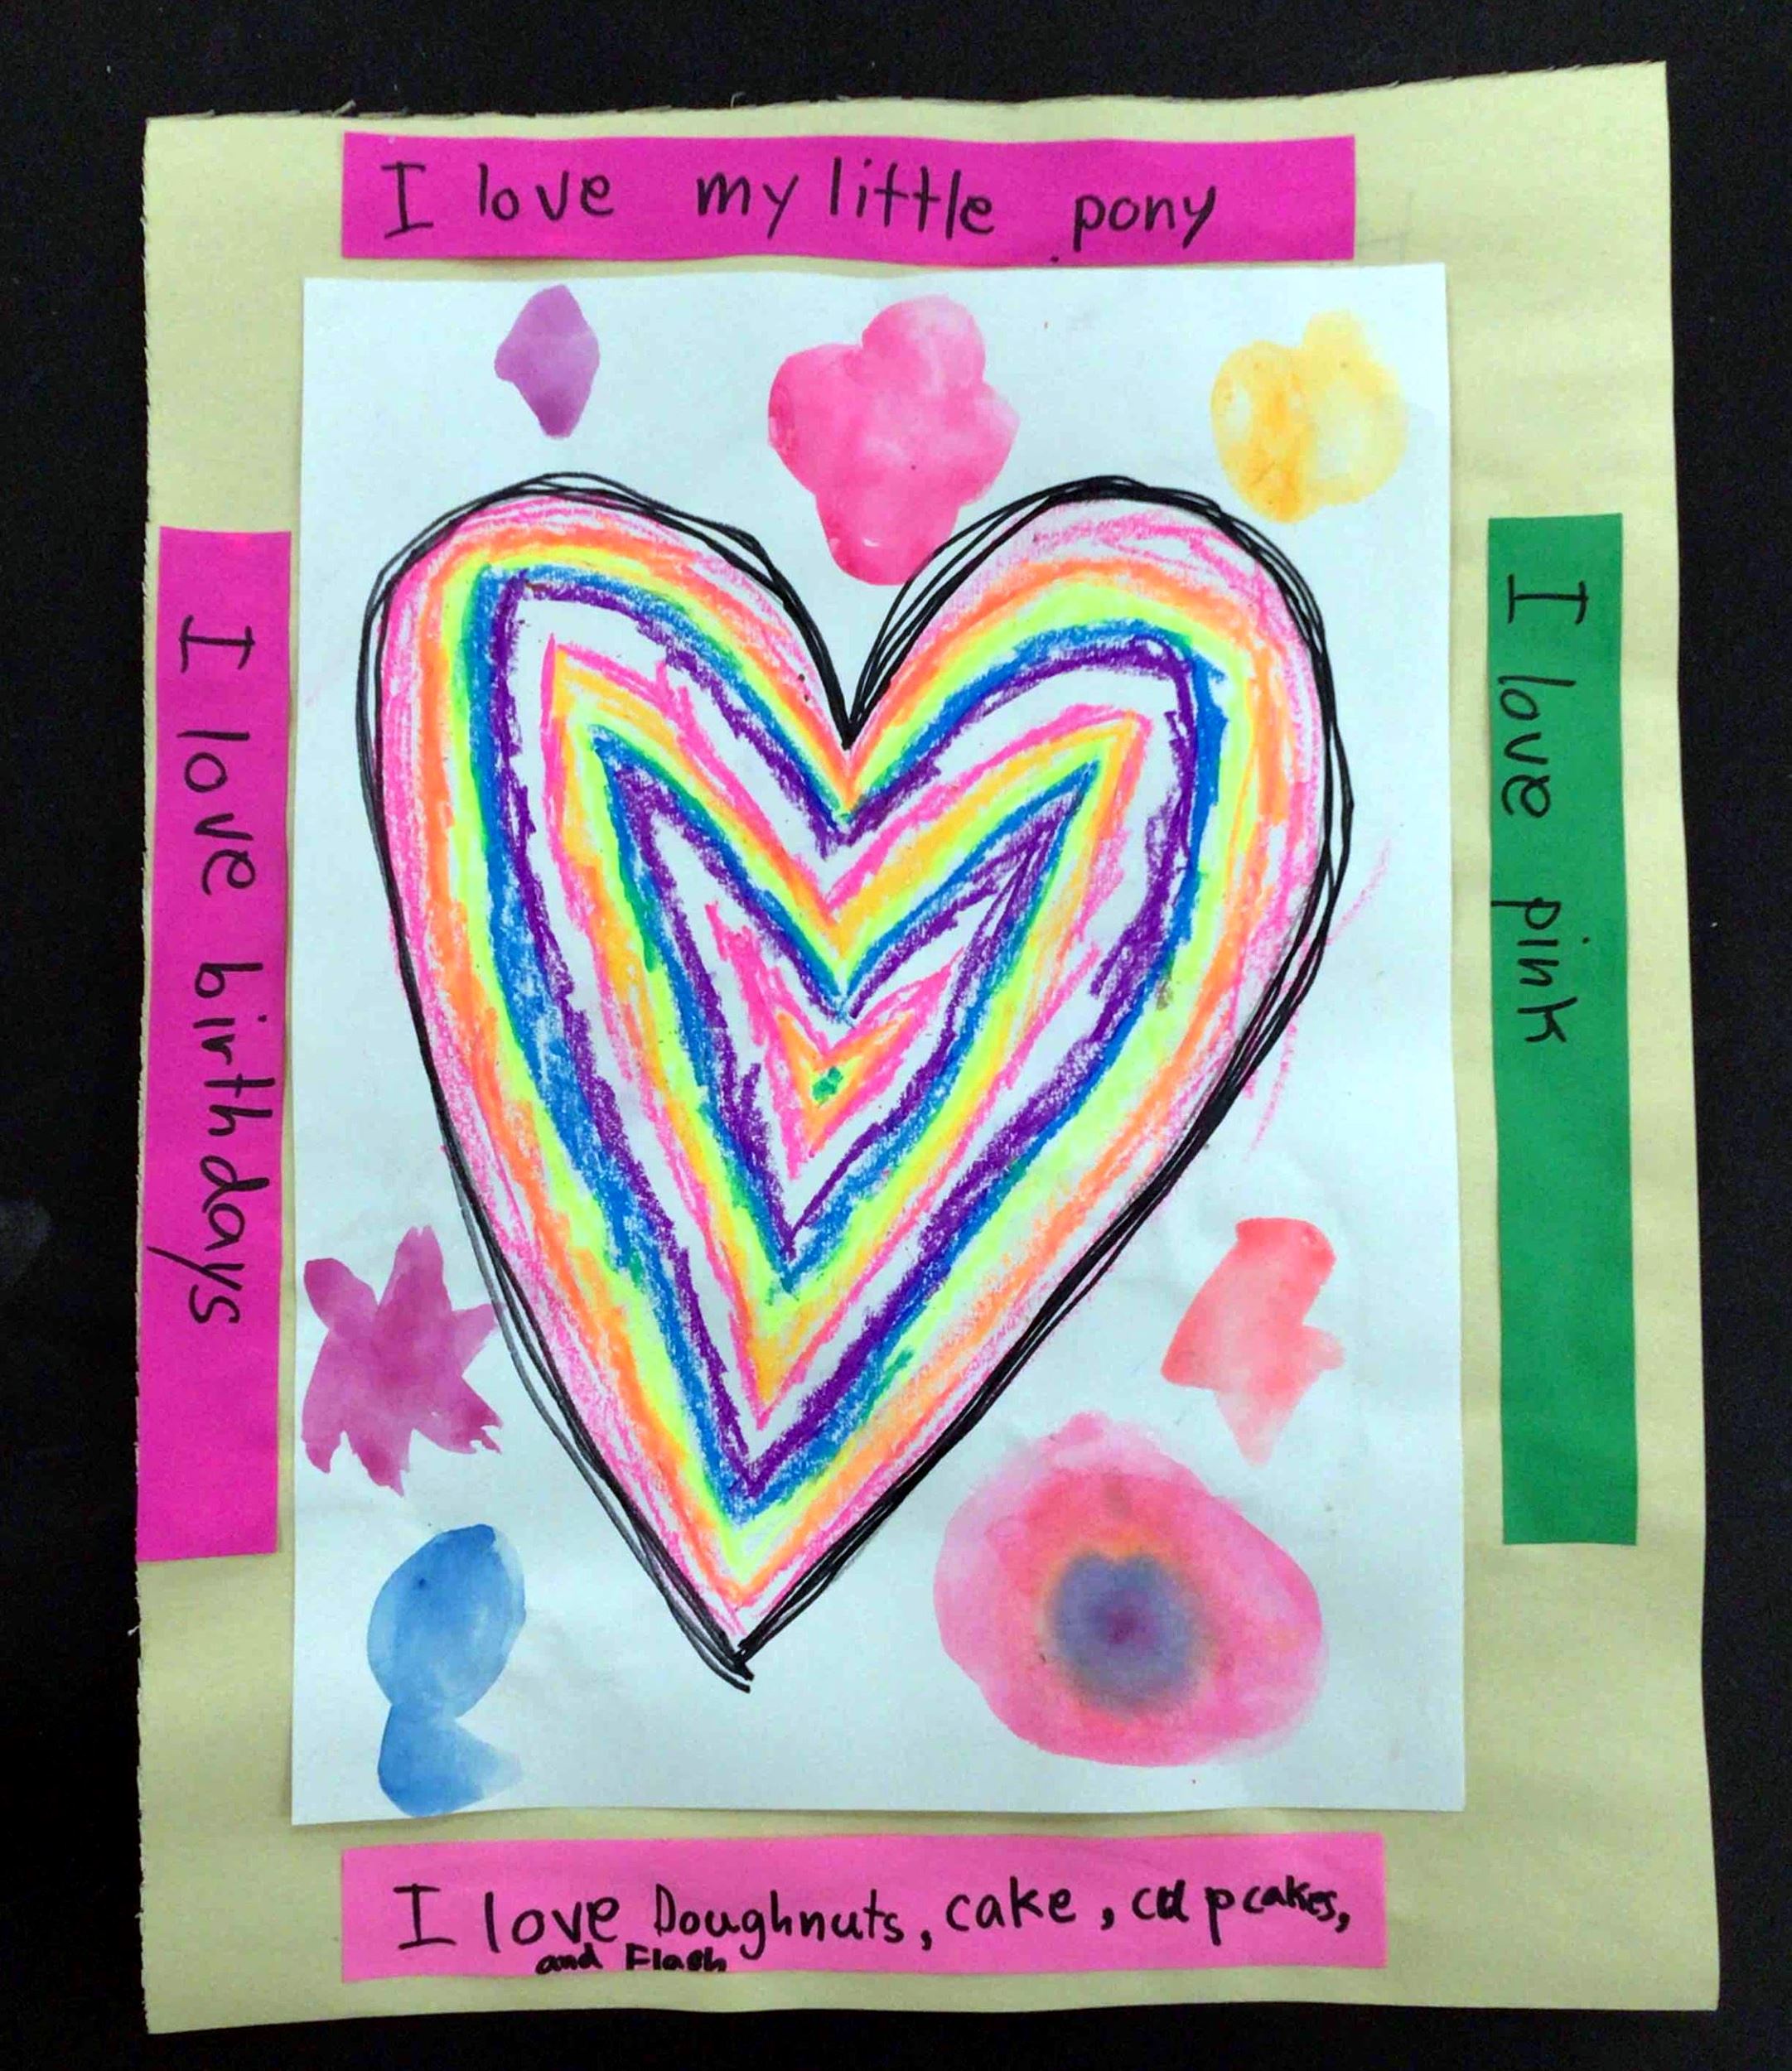 I love my little pony
I love birthdays
I love pink
I love Doughnuts, cake, cupcakes,
and Flash